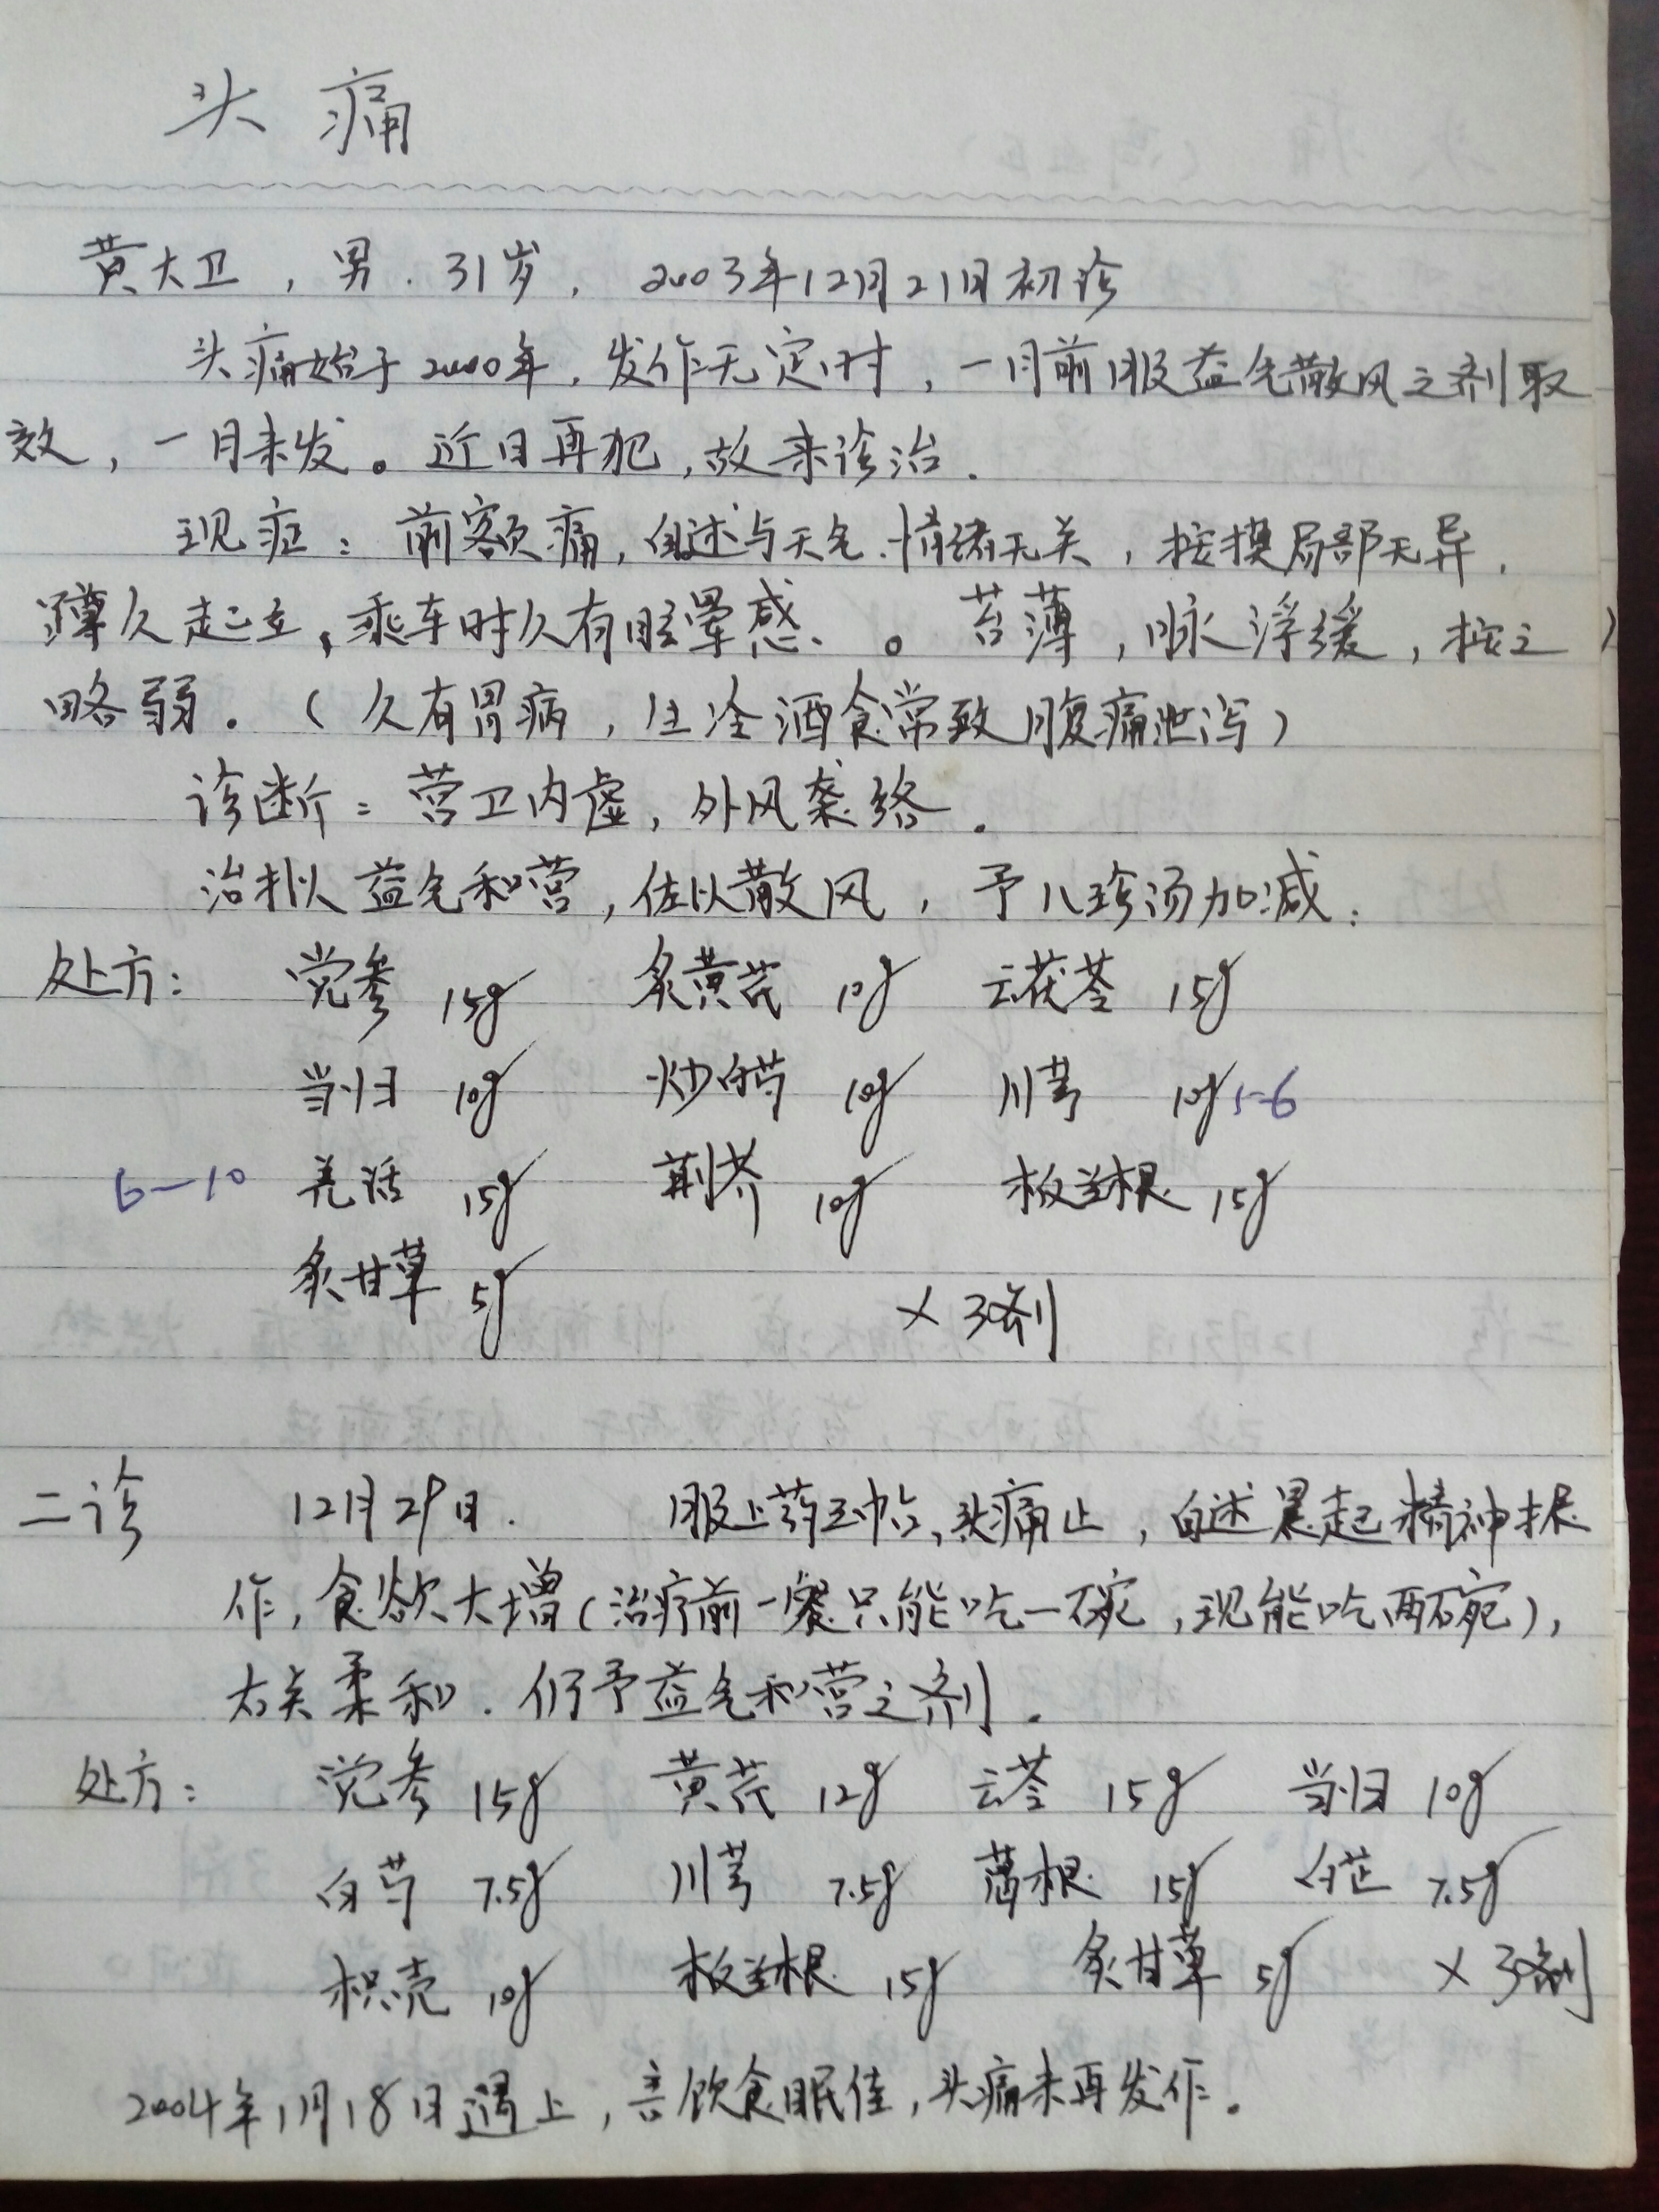 头痛
黄大卫，男．31岁， 2003年12月21日初诊
头痛始于2000年，发作无定时，一月前服益气散风之剂取
效，一月未发。近日再犯，故来诊治．
现症：前额痛，自述与天气、情绪无关，按摸局部无异，
蹲久起立，乘车时久有眩晕感。苔薄，脉浮缓，按之
略弱。（久有胃病，生冷酒食常致腹痛泄泻）
诊断：营卫内虚，外风袭络．
治拟益气和营，佐以散风，予八珍汤加减：
处方： 党参 15g 炙黄芪 10g 云茯苓 15g
当归 10g 炒白芍 10g 川芎 10g 5-6
6—10 羌活 15g 荆芥 10g 板兰根 15g
炙甘草 5g ×3剂
二诊 12月29日． 服上药3帖，头痛止，自述晨起精神振
作，食欲大增（治疗前一餐只能吃一碗，现能吃两碗），
右关柔和．仍予益气和营之剂．
处方： 党参 15g 黄芪 12g 云苓 15g 当归 10g
白芍 7.5g 川芎 7.5g 葛根 15g 白芷 7.5g
枳壳 10g 板兰根 15g 炙甘草 5g ×3剂
2004年1月18日遇上，言饮食眠佳，头痛未再发作。